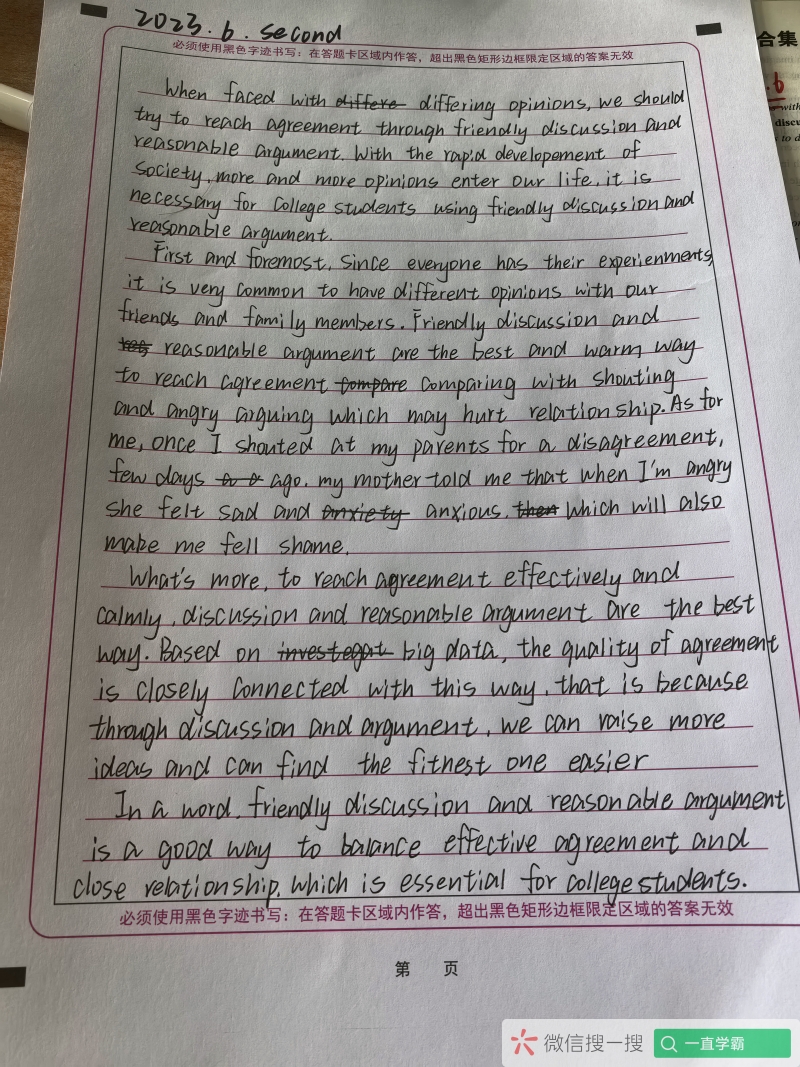 2023.6.second
必须使用黑色字迹书写：在答题卡区域内作答，超出黑色矩形边框限定区域的答案无效
合集
When faced with differe differing opinions, we should
try to reach agreement through friendly discussion and
reasonable argument. With the rapid developement of
society, more and more opinions enter our life, it is
necessary for college students using friendly discussion and
reasonable argument.
First and foremost, since everyone has their experienments,
it is very common to have different opinions with our
friends and family members. Friendly discussion and
reg reasonable argument are the best and warm way
to reach agreement compare comparing with shouting
and angry arguing which may hurt relationship. As for
me, once I shouted at my parents for a disagreement,
few days ago, my mother told me that when I'm angry
she felt sad and anxiety anxious, then which will also
make me fell shame.
What's more, to reach agreement effectively and
calmly, discussion and reasonable argument are the best
way. Based on investegat big data, the quality of agreement
is closely connected with this way, that is because
through discussion and argument, we can raise more
ideas and can find the fitnest one easier
In a word, friendly discussion and reasonable argument
is a good way to balance effective agreement and
close relationship, which is essential for college students.
必须使用黑色字迹书写：在答题卡区域内作答，超出黑色矩形边框限定区域的答案无效
第 页
微信搜一搜
一直学霸